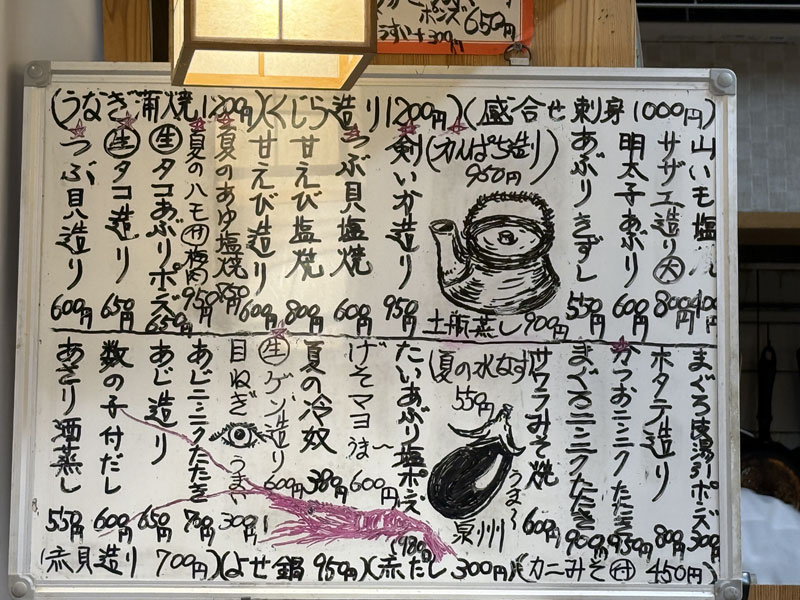 ポンズ 650円
(うなぎ蒲焼1200円)(くじら造り1200円)(盛合せ刺身1000円)
山いも塩 400円
サザエ造り大 800円
明太子あぶり 600円
あぶりきずし 550円
(かんぱち造り) 950円
土瓶蒸し 900円
剣いか造り 950円
つぶ貝塩焼 600円
甘えび塩焼 800円
甘えび造り 600円
夏のあゆ塩焼 850円
夏のハモ 梅肉 950円
生タコあぶりポンズ 650円
生タコ造り 650円
つぶ貝造り 600円
まぐろ皮湯引ポンズ 300円
ホタテ造り 800円
かつおニンニクたたき 950円
まぐろニンニクたたき 900円
サワラみそ焼 600円
(夏の水なす) 550円
うま~
泉州
たいあぶり塩ポンズ 980円
げそマヨ うま~ 600円
夏の冷奴 380円
生ゲソ造り 600円
目ねぎ うまい 300円
あじニンニクたたき 700円
あじ造り 650円
数の子付だし 600円
あさり酒蒸し 550円
(赤貝造り 700円)(よせ鍋 950円)(赤だし 300円)(カニみそ付 450円)